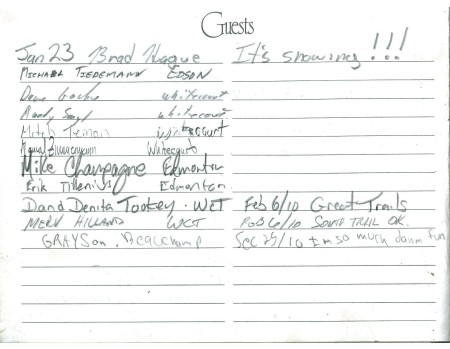 Guests
Jan 23 Brad Hague It's snowing!!!
MICHAEL TIEDEMANN EDSON
Dave whitecourt
Randy whitecourt
Mitch whitecourt
Zimmerman Whitecourt
Mike Champagne Edmonton
Erik Tillenius Edmonton
D and Denita Tookey. WCT Feb 6/10 Great Trails
MERV HILLAND WCT Feb 6/10 SOUTH TRAIL OK.
GRAYSon. Beauchamp Dec 29/10 Im so much damm fun